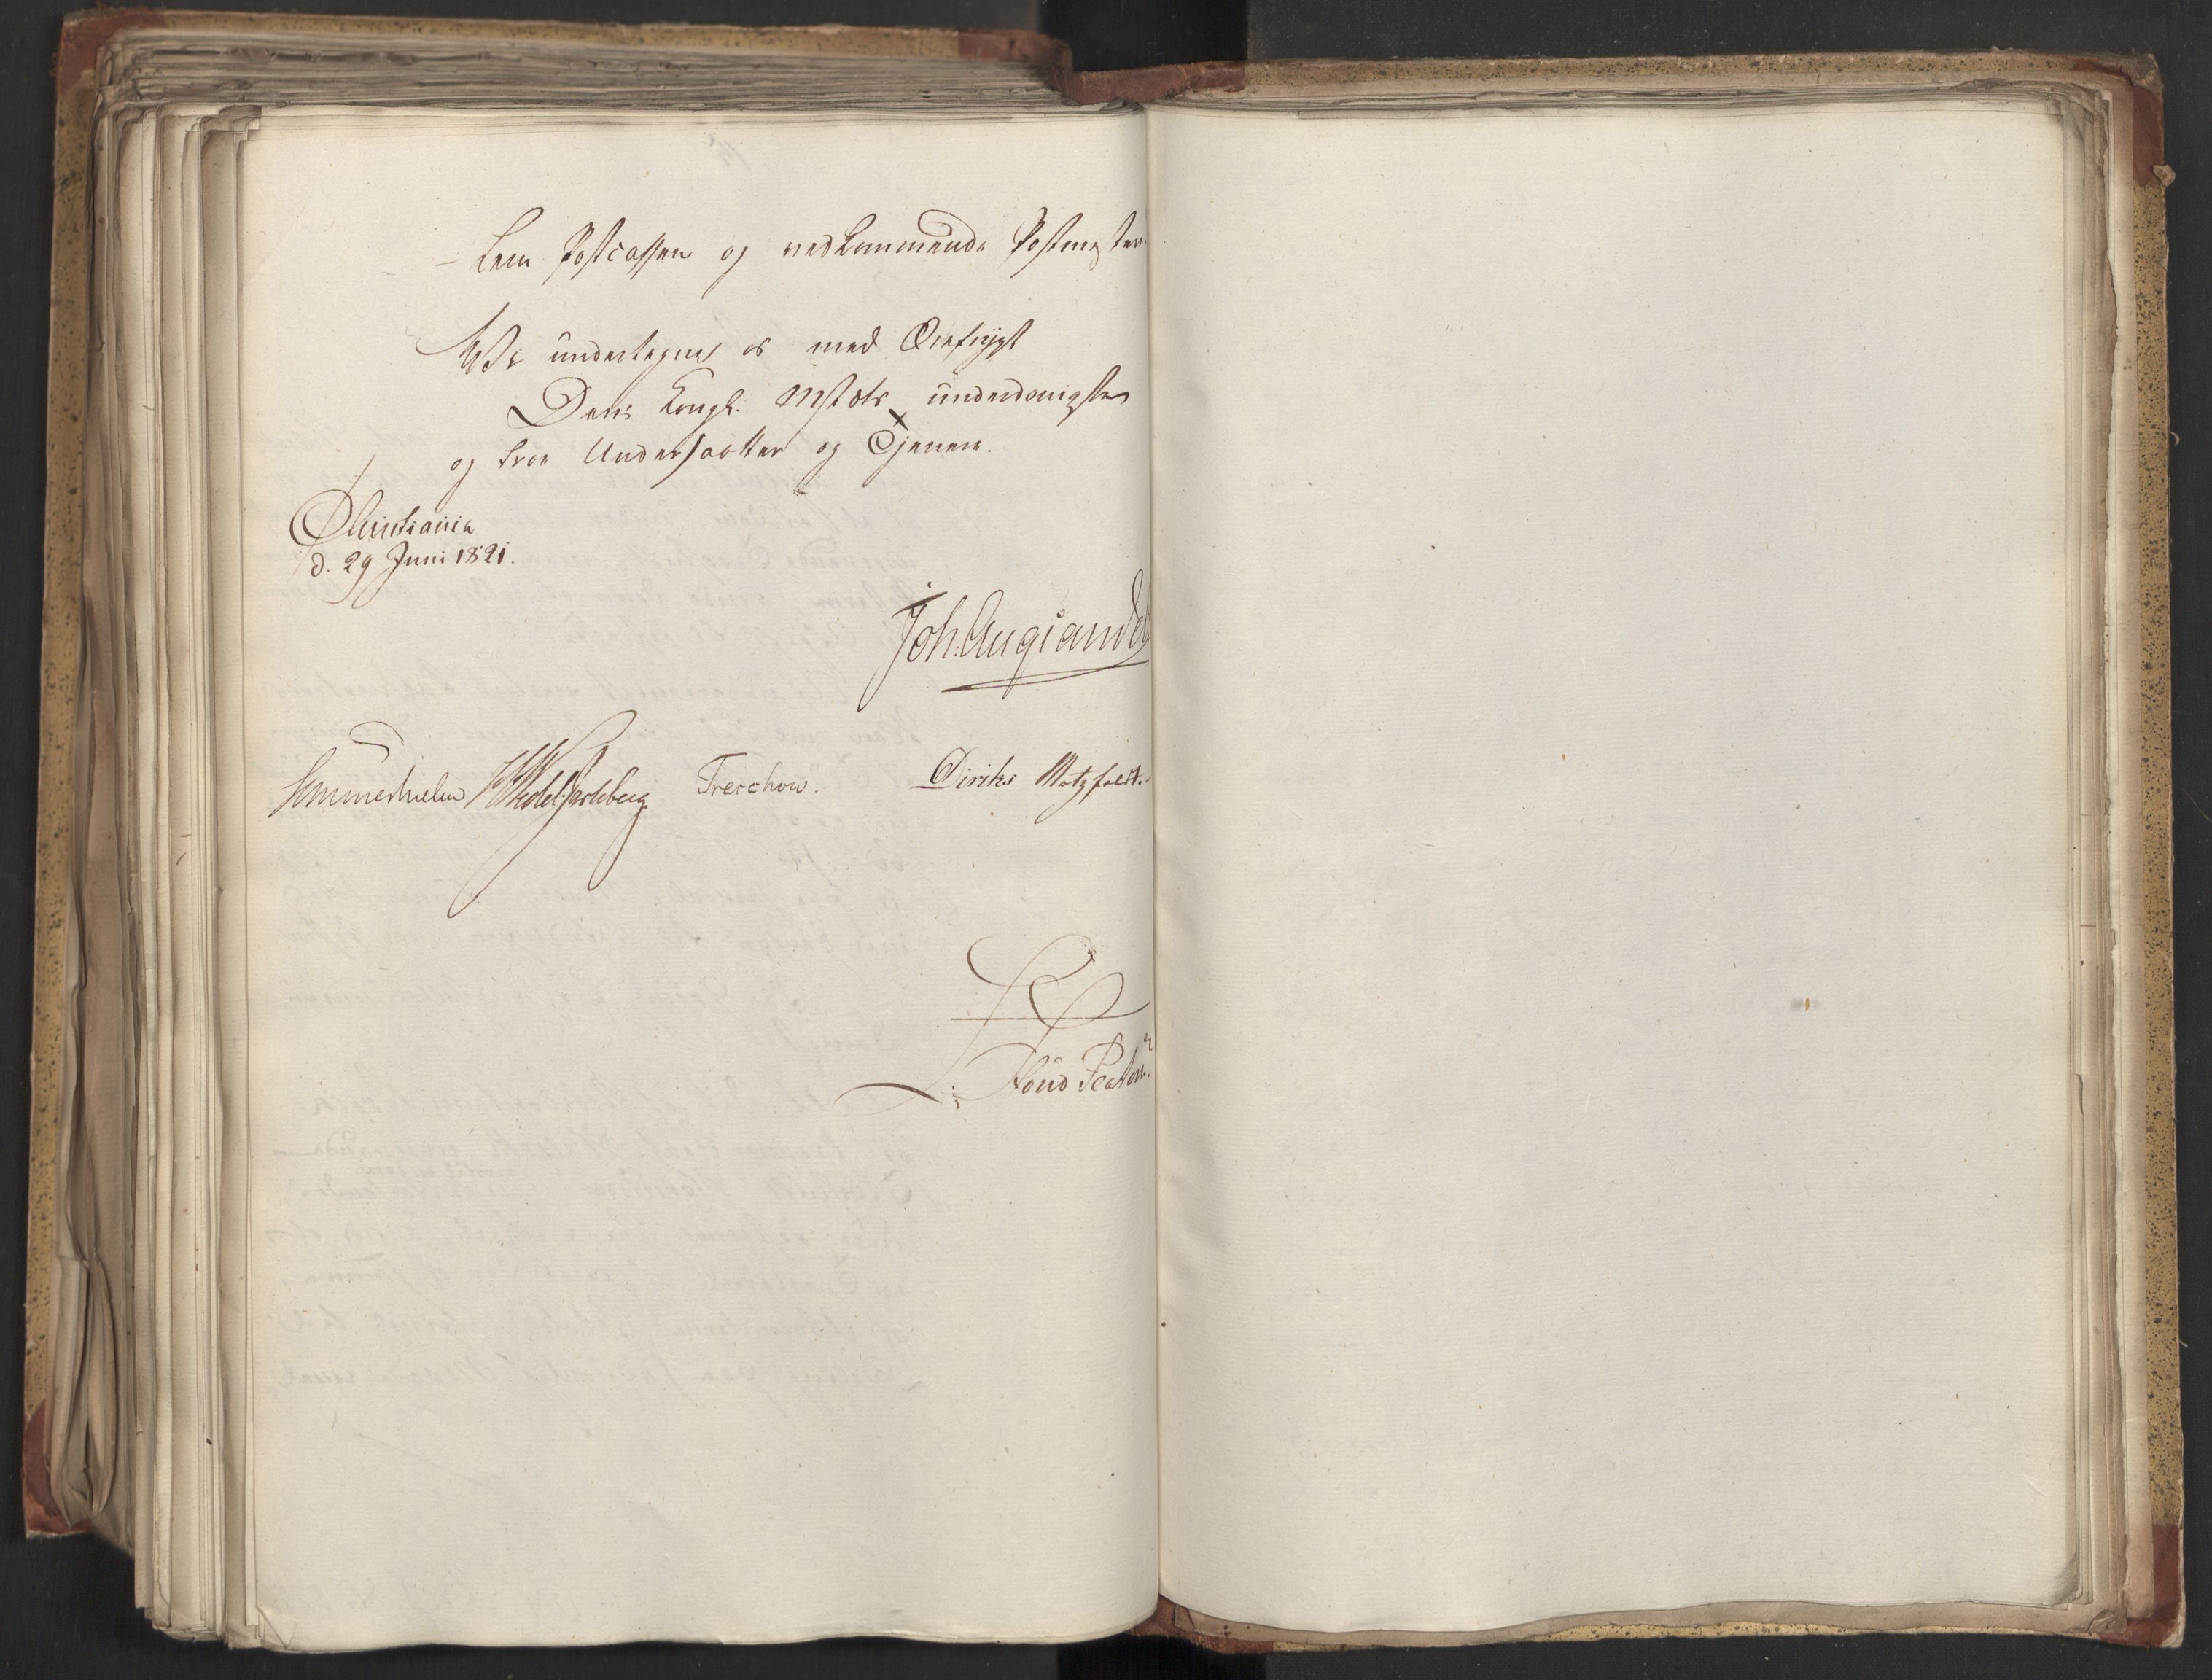 - lem Postcassen og vedkommende Postmester.
Vi undertegne os med Ærefrygt
Deres Kongl. Mstæts underdanigste
og troe Undersaatter og Tjenere.
Christiania
d. 29 Juni 1821.
Joh. Aug Sandels
Sommerhielm HWedel Jarlsberg Treschow. Diriks Motzfeldt.